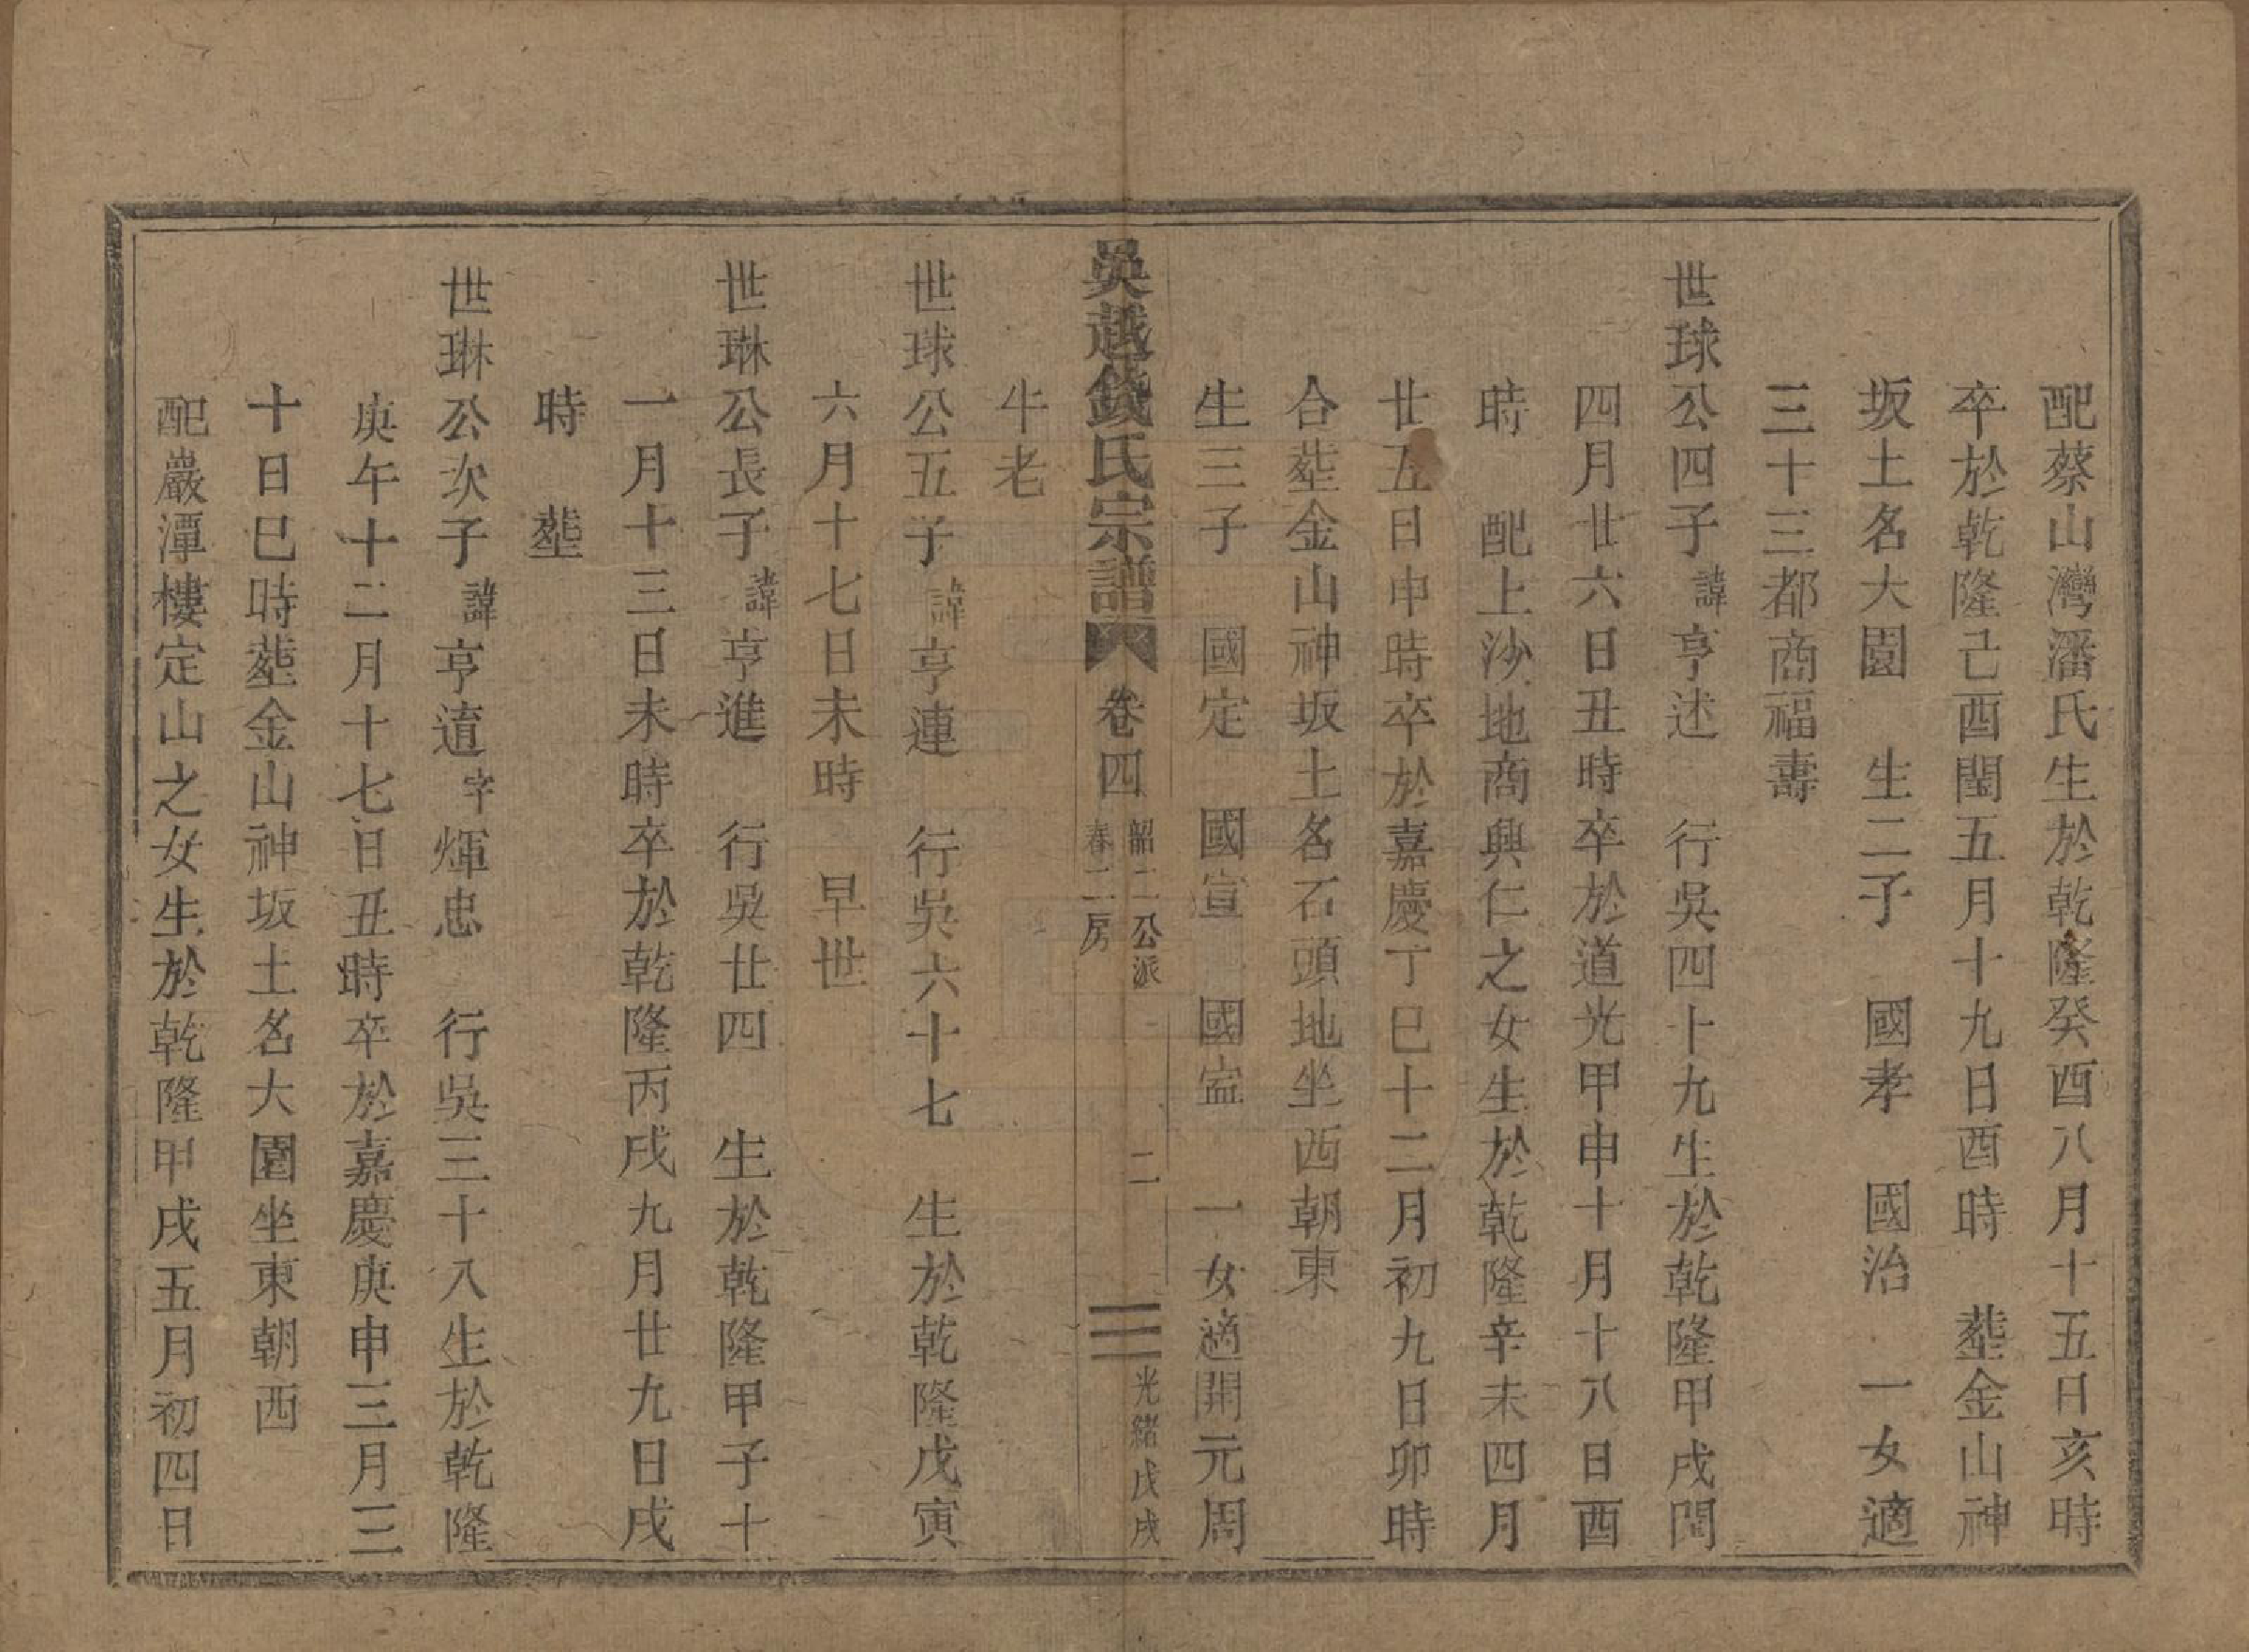 配蔡山灣潘氏生於乾隆癸酉八月十五日亥時
卒於乾隆己酉閏五月十九日酉時 塟金山神
坂土名大園 生二子 國孝 國治 一女適
三十三都商福壽
世球公四子諱亨述 行吳四十九生於乾隆甲戌閏
四月廿六日丑時卒於道光甲申十月十八日酉
時 配上沙地商興仁之女生於乾隆辛未四月
廿五日申時卒於嘉慶丁巳十二月初九日卯時
合塟金山神坂土名石頭地坐西朝東
生三子 國定 國宣 國寍 一女適開元周
吳越錢氏宗譜 卷四 韶二公派 春二房 二 光緒戊戌
牛老
世球公五子諱亨連 行吳六十七 生於乾隆戊寅
六月十七日未時 早世
世琳公長子諱亨進 行吳廿四 生於乾隆甲子十
一月十三日未時卒於乾隆丙戌九月廿九日戌
時 塟
世琳公次子諱亨遉字煇忠 行吳三十八生於乾隆
庚午十二月十七日丑時卒於嘉慶庚申三月三
十日巳時塟金山神坂土名大園坐東朝西
配嚴潭樓定山之女生於乾隆甲戌五月初四日